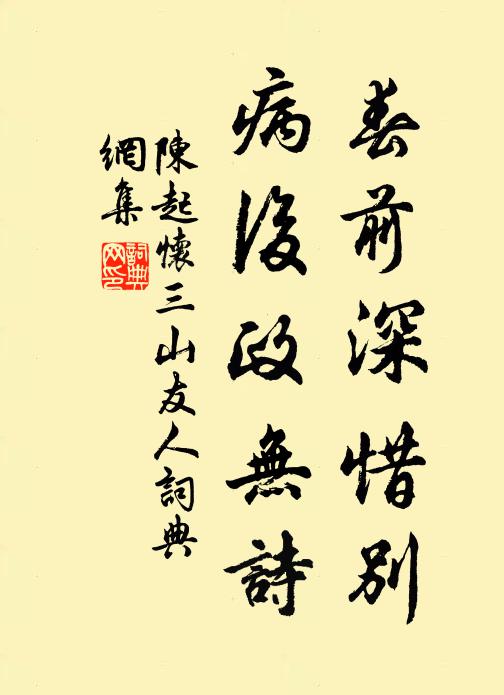 春前深惜別
病後政無詩
陳起懷三山友人詞典
網集
詞典网印